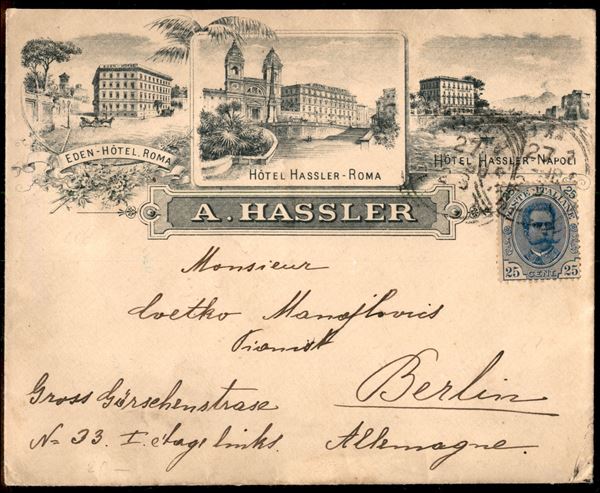 EDEN-HÔTEL. ROMA
HÔTEL HASSLER-ROMA
HÔTEL HASSLER-NAPOLI
A. HASSLER
27
27
POSTE ITALIANE
25 CENT. 25
Monsieur
Cvetko Manojlovics
Pianist
Berlin
Gross Görschenstrase
No 33. I. etage links.
Allemagne.